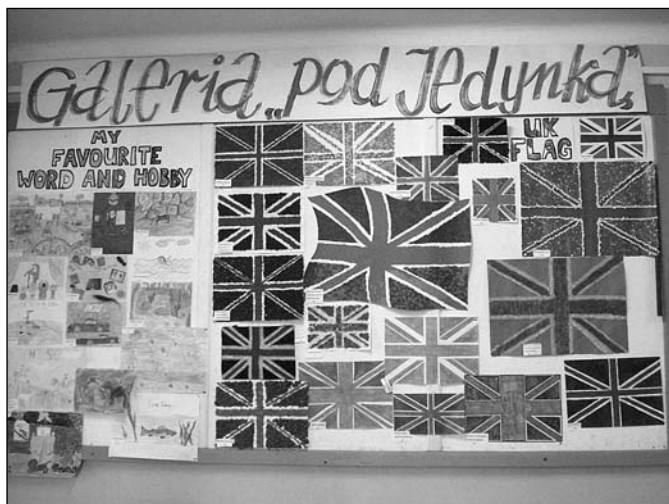 Galeria „pod Jedynką”
MY
FAVOURITE
WORD AND HOBBY
UK
FLAG